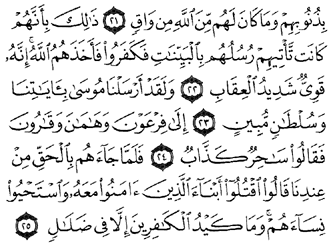 بِذُنُوبِهِمْ وَمَا كَانَ لَهُم مِّنَ ٱللَّهِ مِن وَاقٍ ٢١ ذَٰلِكَ بِأَنَّهُمْ
كَانَت تَّأْتِيهِمْ رُسُلُهُم بِٱلْبَيِّنَٰتِ فَكَفَرُوا۟ فَأَخَذَهُمُ ٱللَّهُ إِنَّهُۥ
قَوِىٌّ شَدِيدُ ٱلْعِقَابِ ٢٢ وَلَقَدْ أَرْسَلْنَا مُوسَىٰ بِـَٔايَٰتِنَا
وَسُلْطَٰنٍ مُّبِينٍ ٢٣ إِلَىٰ فِرْعَوْنَ وَهَٰمَٰنَ وَقَٰرُونَ
فَقَالُوا۟ سَٰحِرٌ كَذَّابٌ ٢٤ فَلَمَّا جَآءَهُم بِٱلْحَقِّ مِنْ
عِندِنَا قَالُوا۟ ٱقْتُلُوٓا۟ أَبْنَآءَ ٱلَّذِينَ ءَامَنُوا۟ مَعَهُۥ وَٱسْتَحْيُوا۟
نِسَآءَهُمْ وَمَا كَيْدُ ٱلْكَٰفِرِينَ إِلَّا فِى ضَلَٰلٍ ٢٥